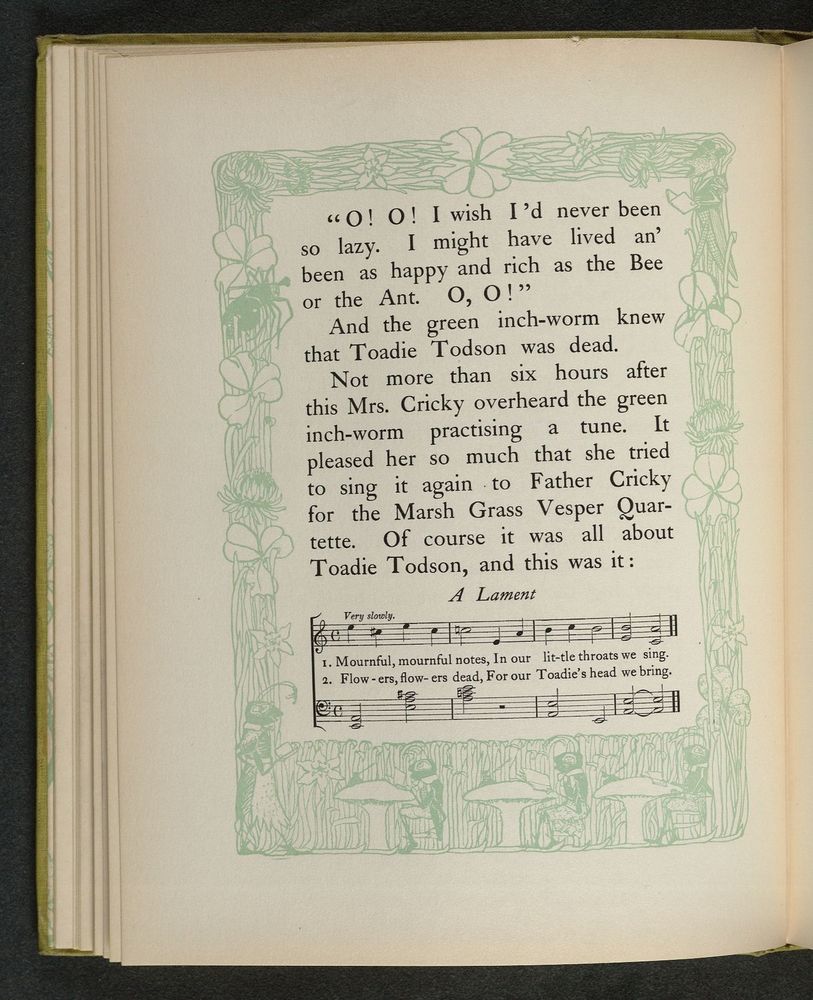 “O! O! I wish I’d never been
so lazy. I might have lived an’
been as happy and rich as the Bee
or the Ant. O, O!”
And the green inch-worm knew
that Toadie Todson was dead.
Not more than six hours after
this Mrs. Cricky overheard the green
inch-worm practising a tune. It
pleased her so much that she tried
to sing it again to Father Cricky
for the Marsh Grass Vesper Quar-
tette. Of course it was all about
Toadie Todson, and this was it:
A Lament
Very slowly.
1. Mournful, mournful notes, In our lit-tle throats we sing.
2. Flow-ers, flow-ers dead, For our Toadie’s head we bring.